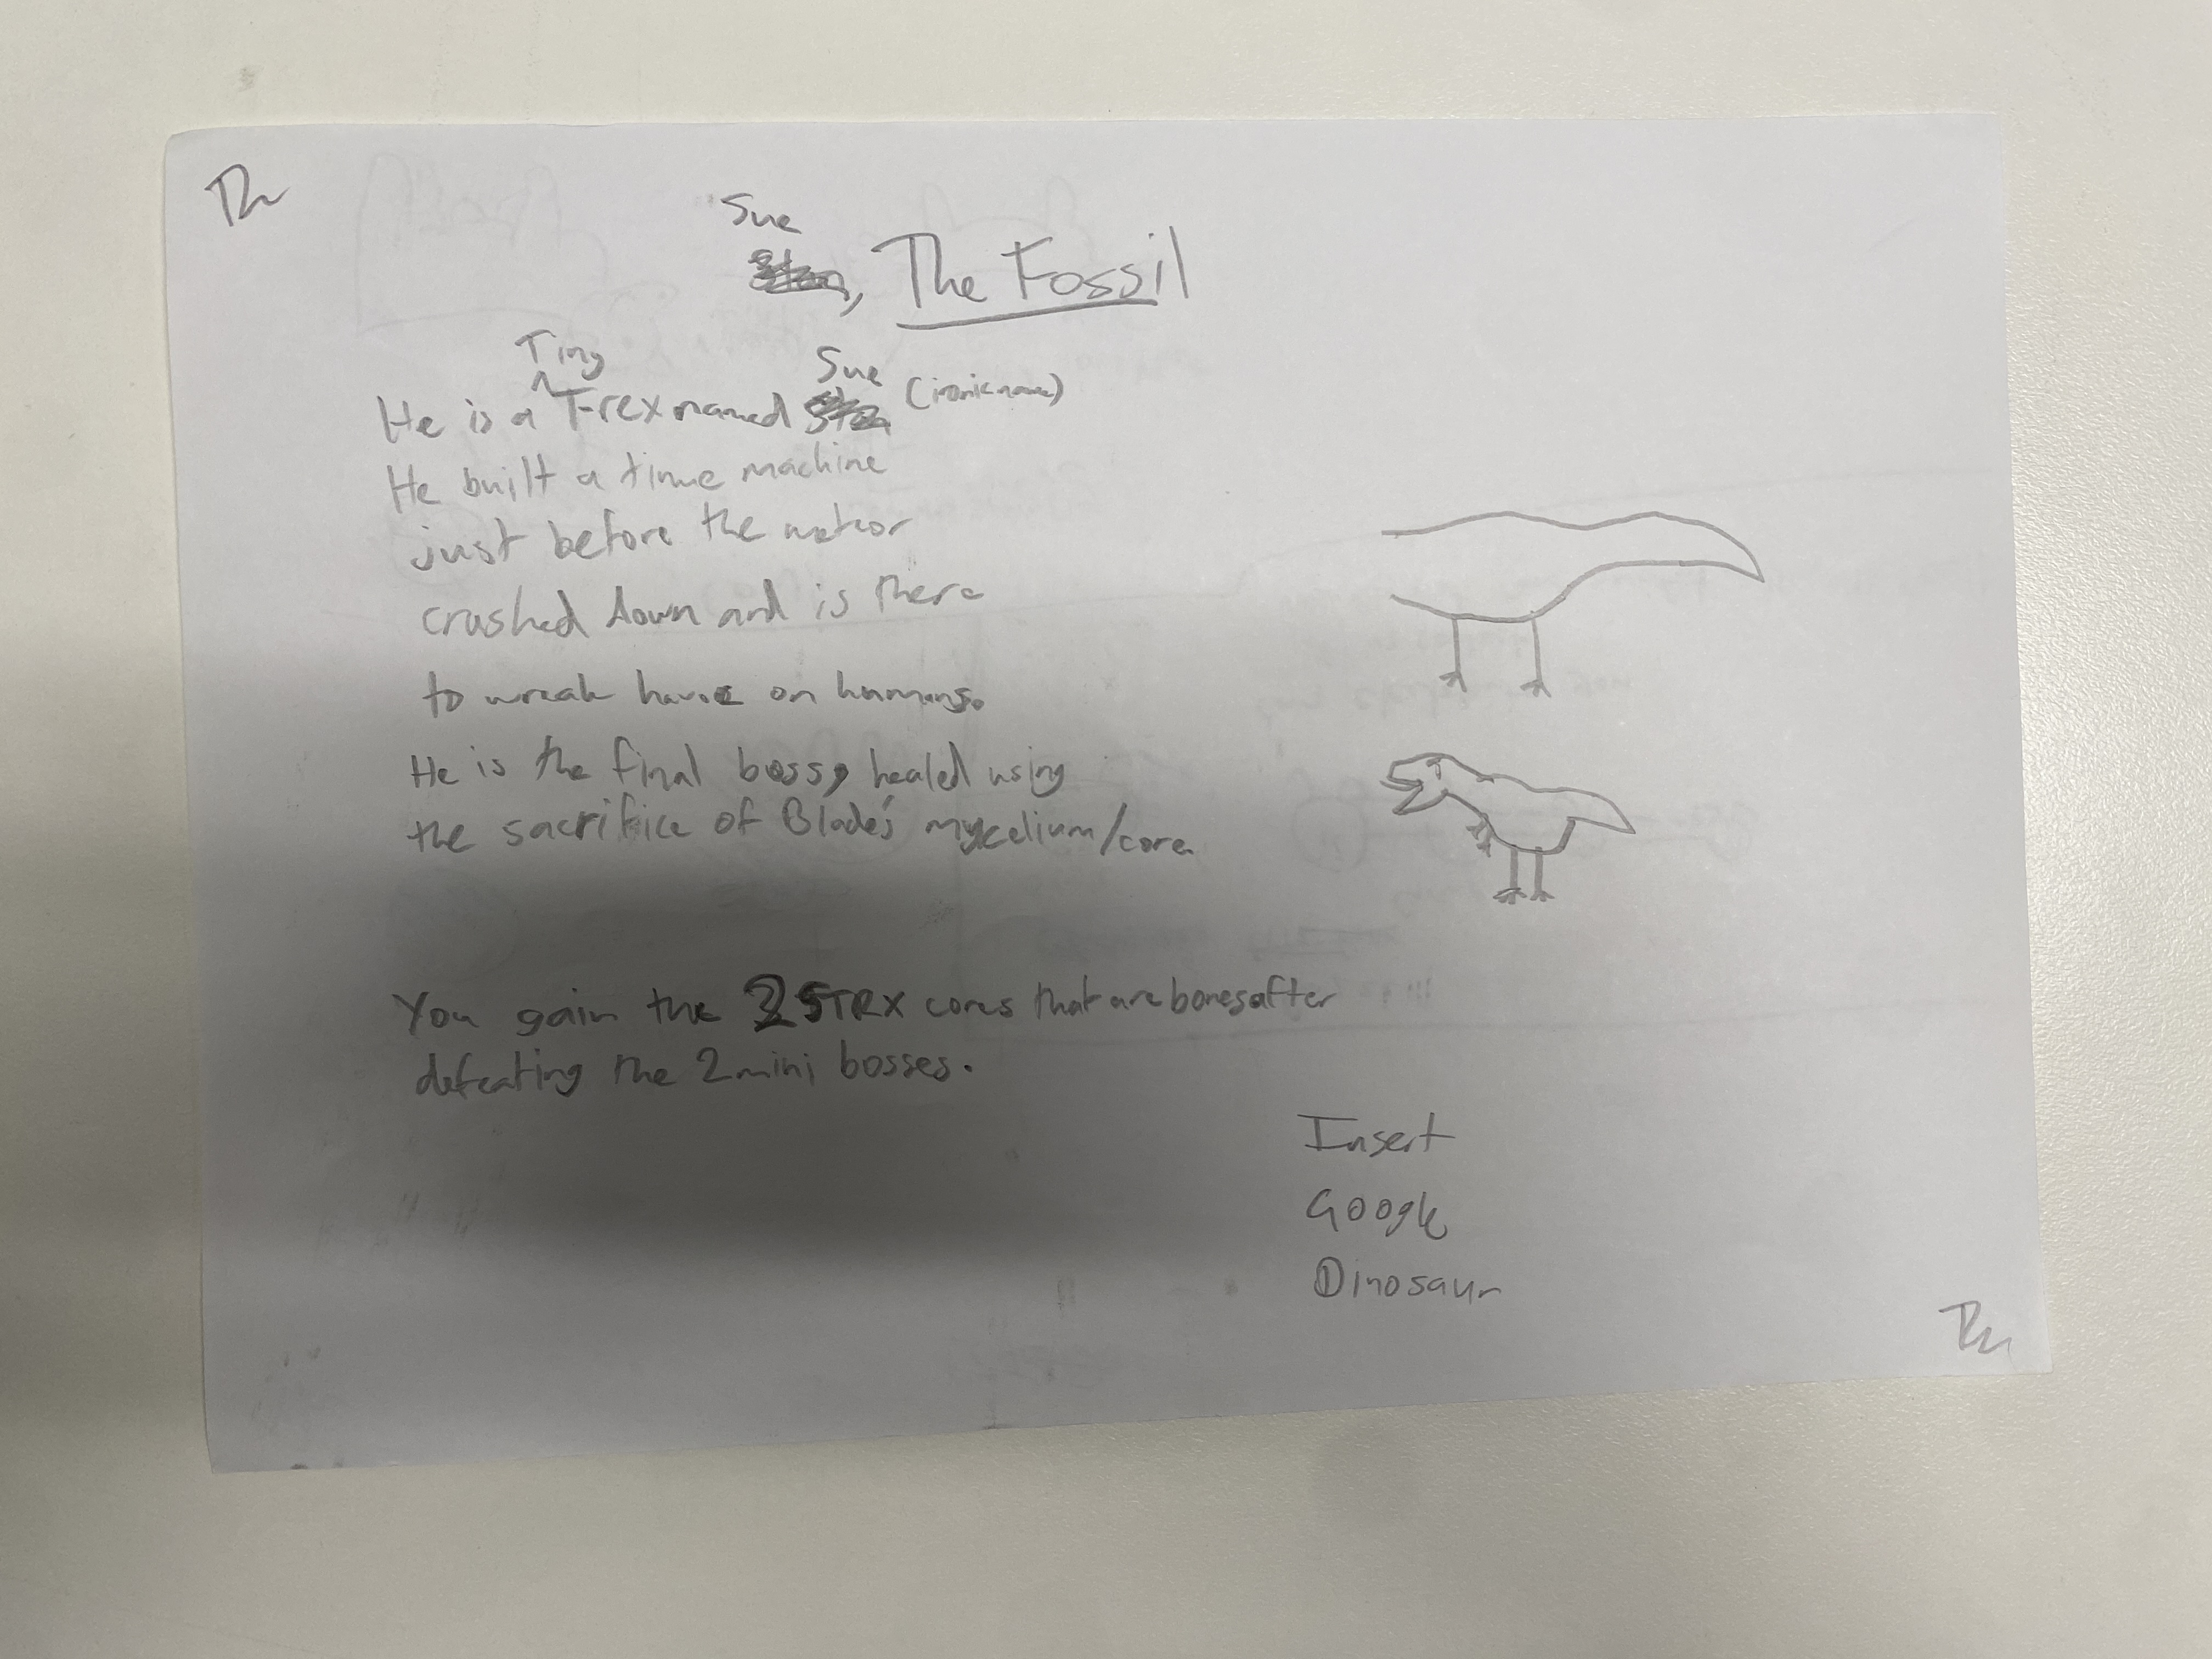 Sue
, The Fossil
Tiny
Sue
He is a T-rex named (ironic name)
He built a time machine
just before the meteor
crashed down and is there
to wreak havoc on humans.
He is the final boss, healed using
the sacrifice of Blade's mycelium/core
You gain the 2 STRX cores that are bones after
defeating the 2 mini bosses.
Insert
Google
Dinosaur